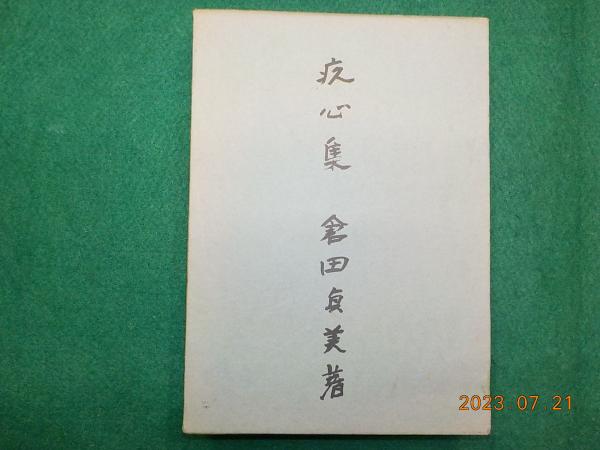 疚心集 倉田貞美著
2023.07.21